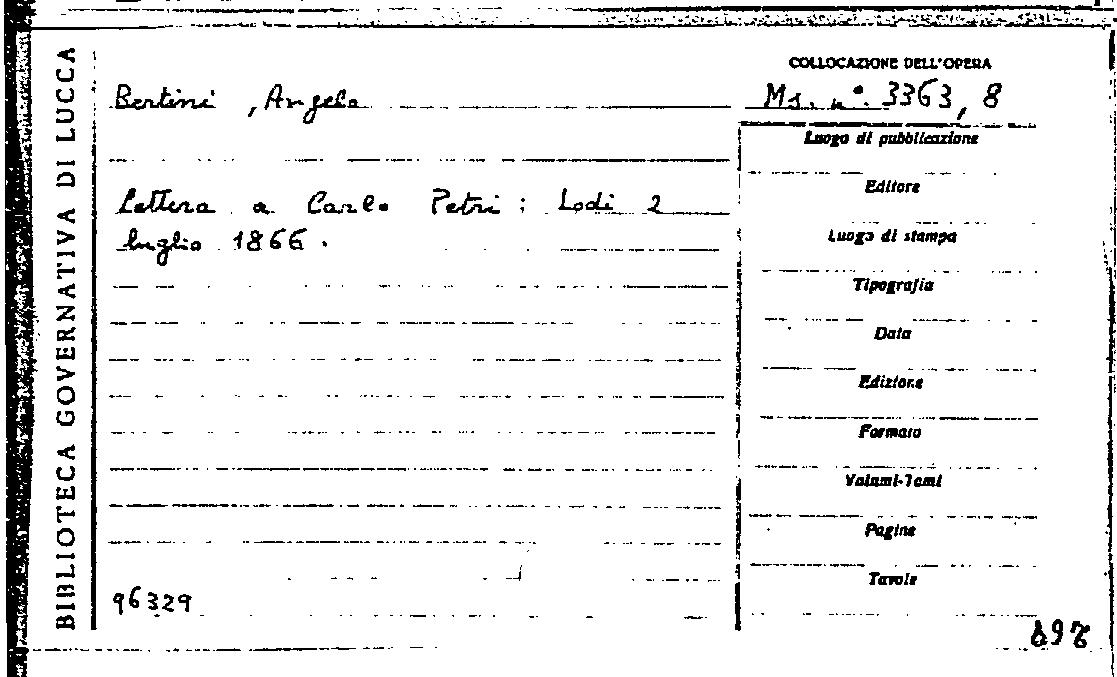 BIBLIOTECA GOVERNATIVA DI LUCCA
COLLOCAZIONE DELL'OPERA
Ms. n°. 3363, 8
Bertini, Angelo
Lettera a Carlo Petri: Lodi 2
luglio 1866.
Luogo di pubblicazione
Editore
Luogo di stampa
Tipografia
Data
Edizione
Formato
Volumi-Tomi
Pagine
Tavole
96329